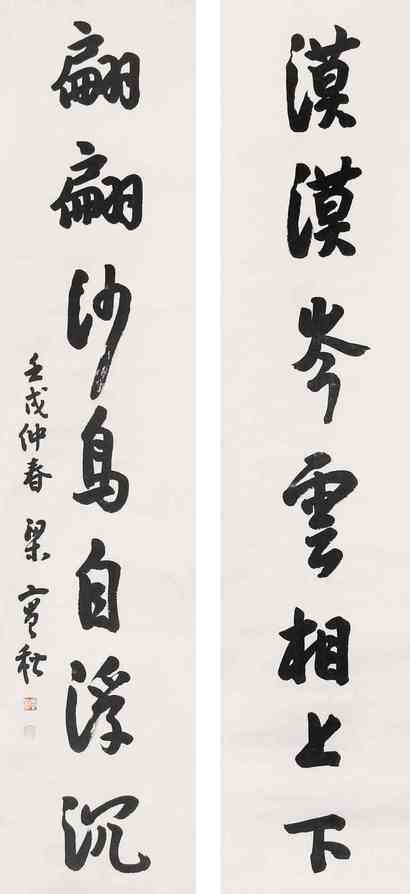 漠漠岑雲相上下
翩翩沙鳥自浮沉
壬戌仲春 梁寒秋